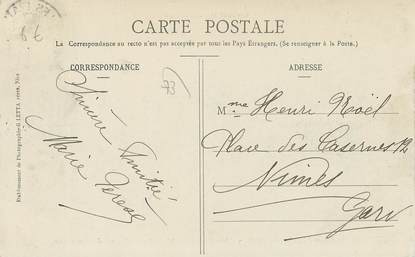 CARTE POSTALE
La Correspondance au recto n'est pas acceptée par tous les Pays Étrangers. (Se renseigner à la Poste.)
CORRESPONDANCE
ADRESSE
Sincère Amitié
Marie Térèse
Mme Henri Noël
Place des Casernes 12
Nimes
Gard
Etablissement de Photographie GILETTA Nice